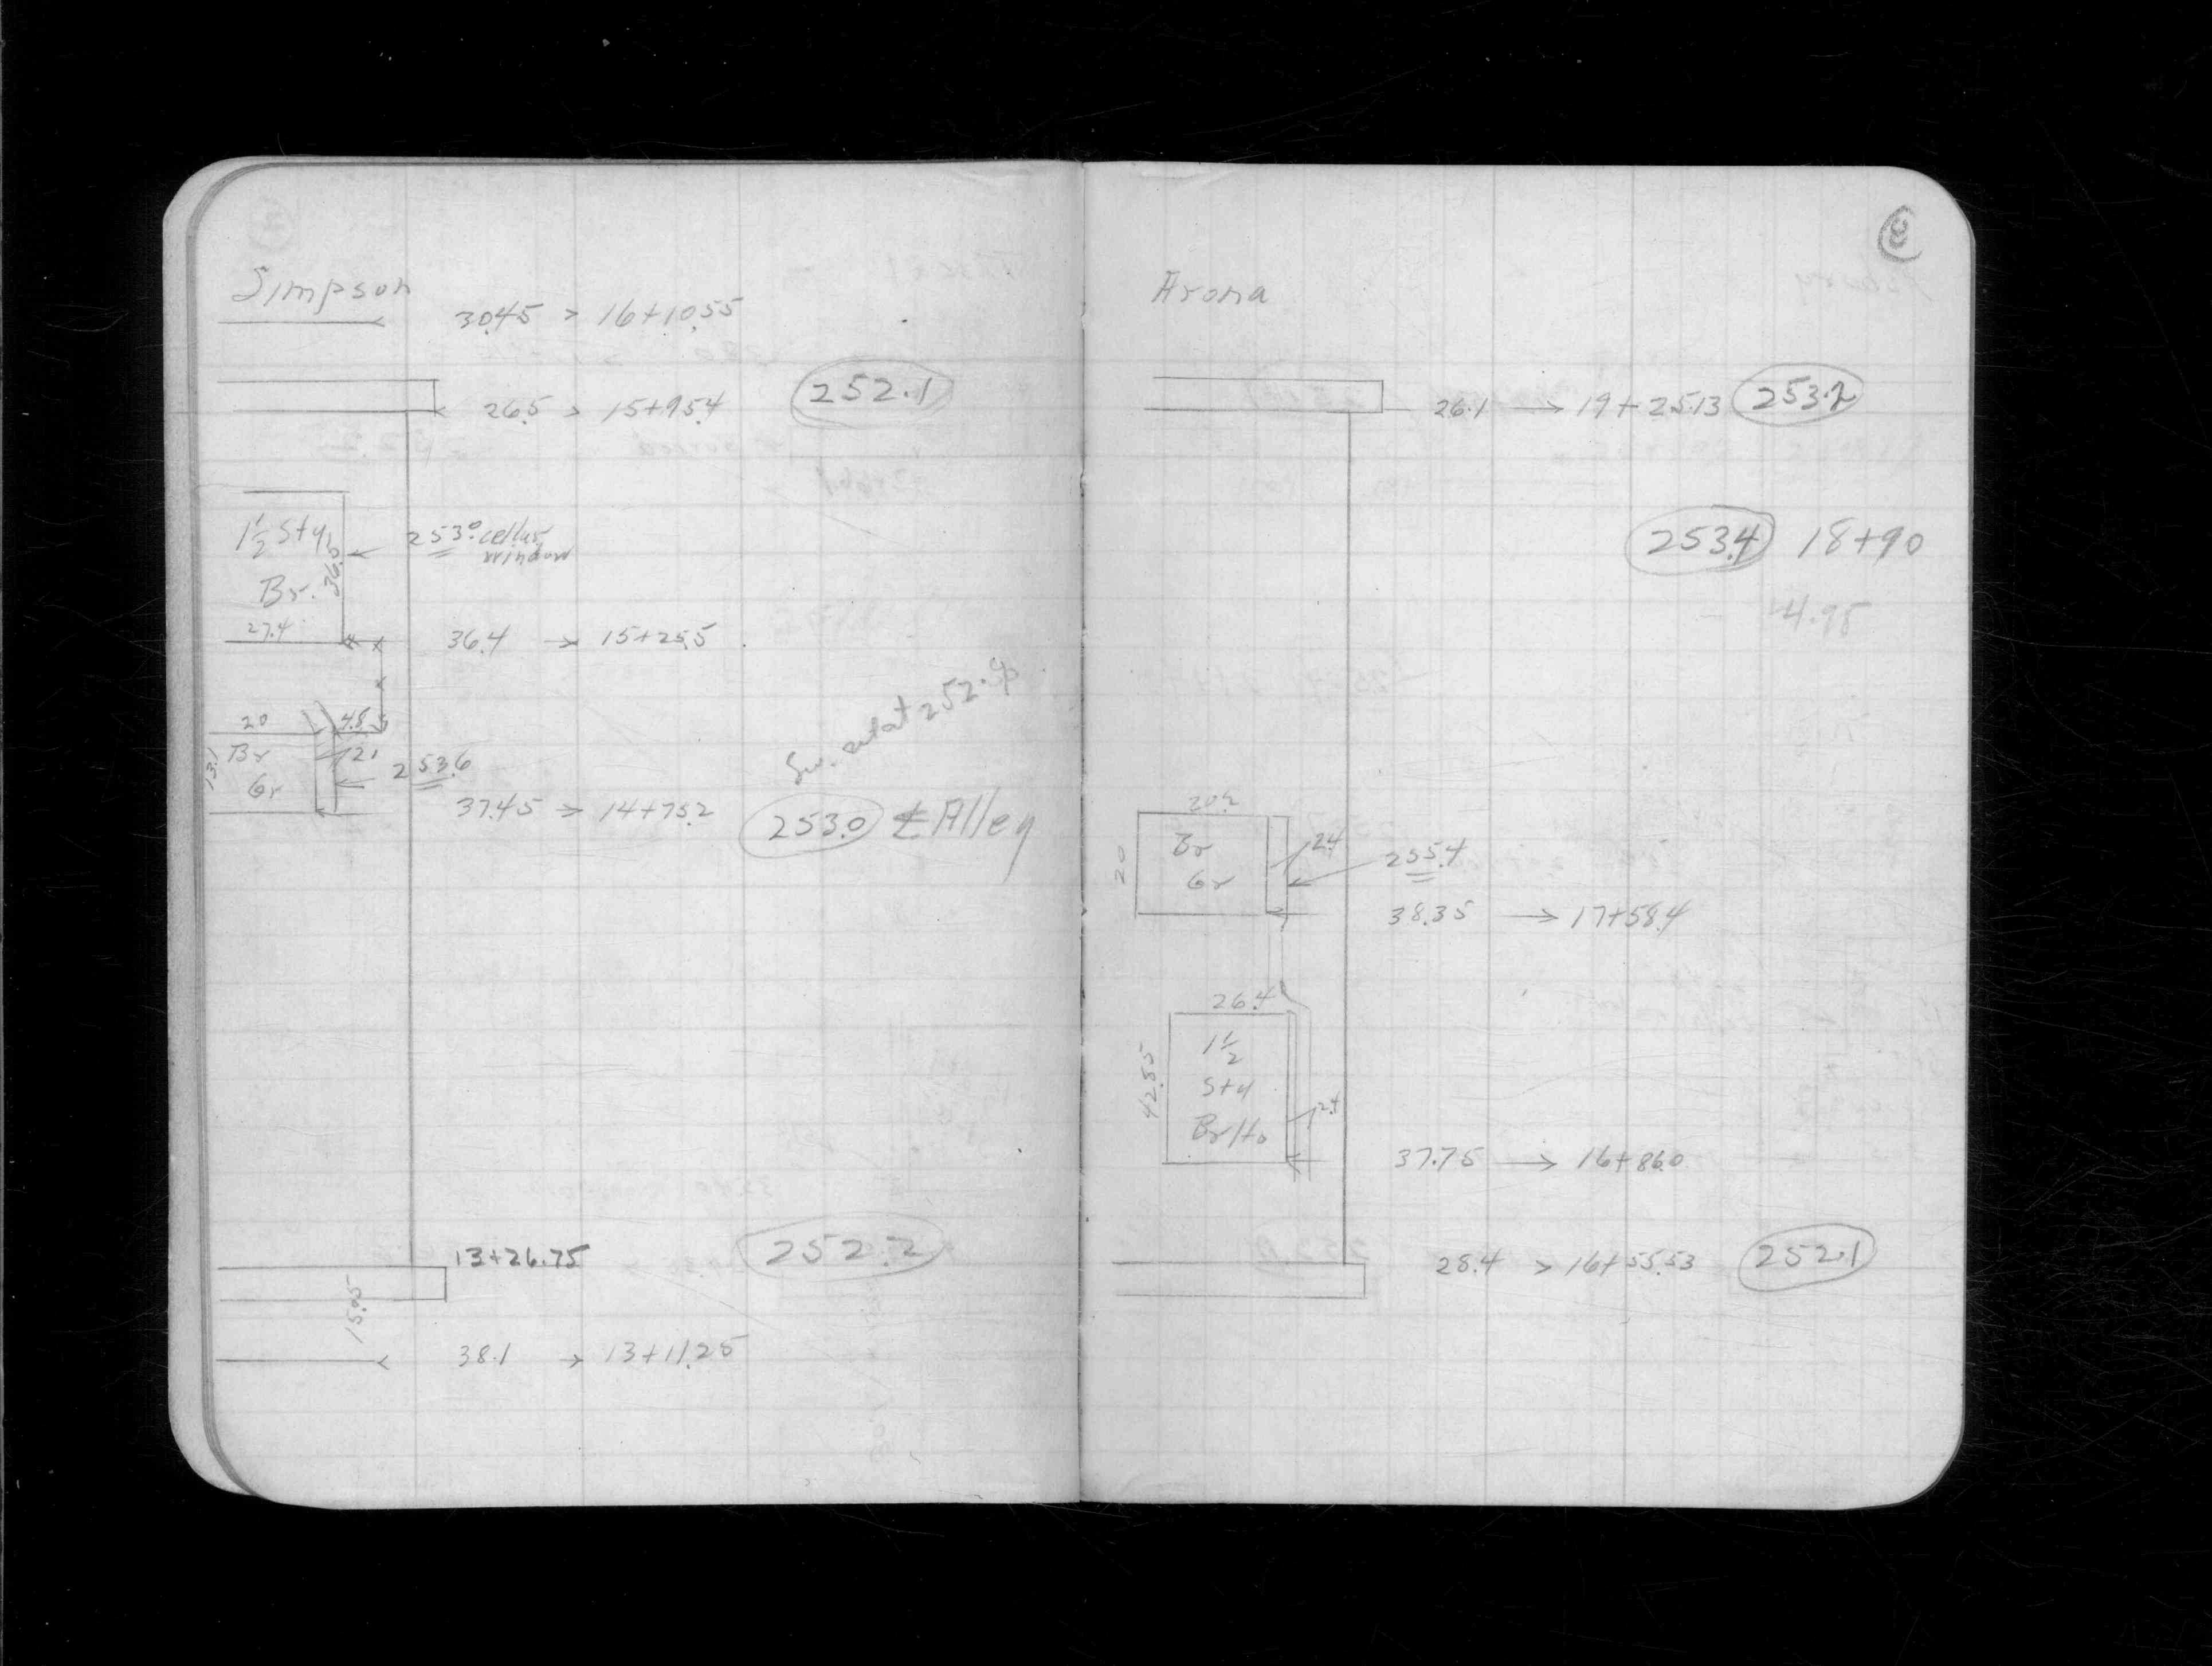 Simpson
30.45 > 16+10.55
26.5 > 15+95.4 252.1
1½ Sty.
36.5
253.0 cellar
window
Br.
27.4
36.4 → 15+25.5
20 4.8
Br 2.1
Gr
253.6
37.45 → 14+75.2 253.0 ℄ Alley
13+26.75 252.2
15.05
38.1 → 13+11.25
8
Arona
26.1 → 19+25.13 253.2
253.4 18+90
4.95
20.2
Br 2.4
Gr
20
255.4
38.35 → 17+58.4
26.4
1½
Sty
Br/Ho
42.85
2.4
37.75 → 16+86.0
28.4 > 16+55.53 252.1